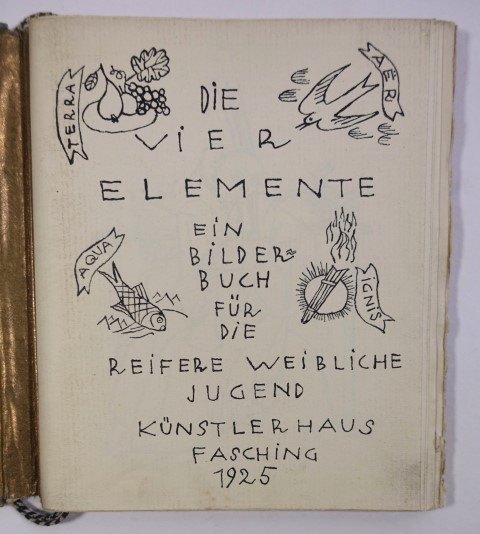 TERRA
AËR
DIE
VIER
ELEMENTE
AQUA
IGNIS
EIN
BILDER=
BUCH
FÜR
DIE
REIFERE WEIBLICHE
JUGEND
KÜNSTLERHAUS
FASCHING
1925